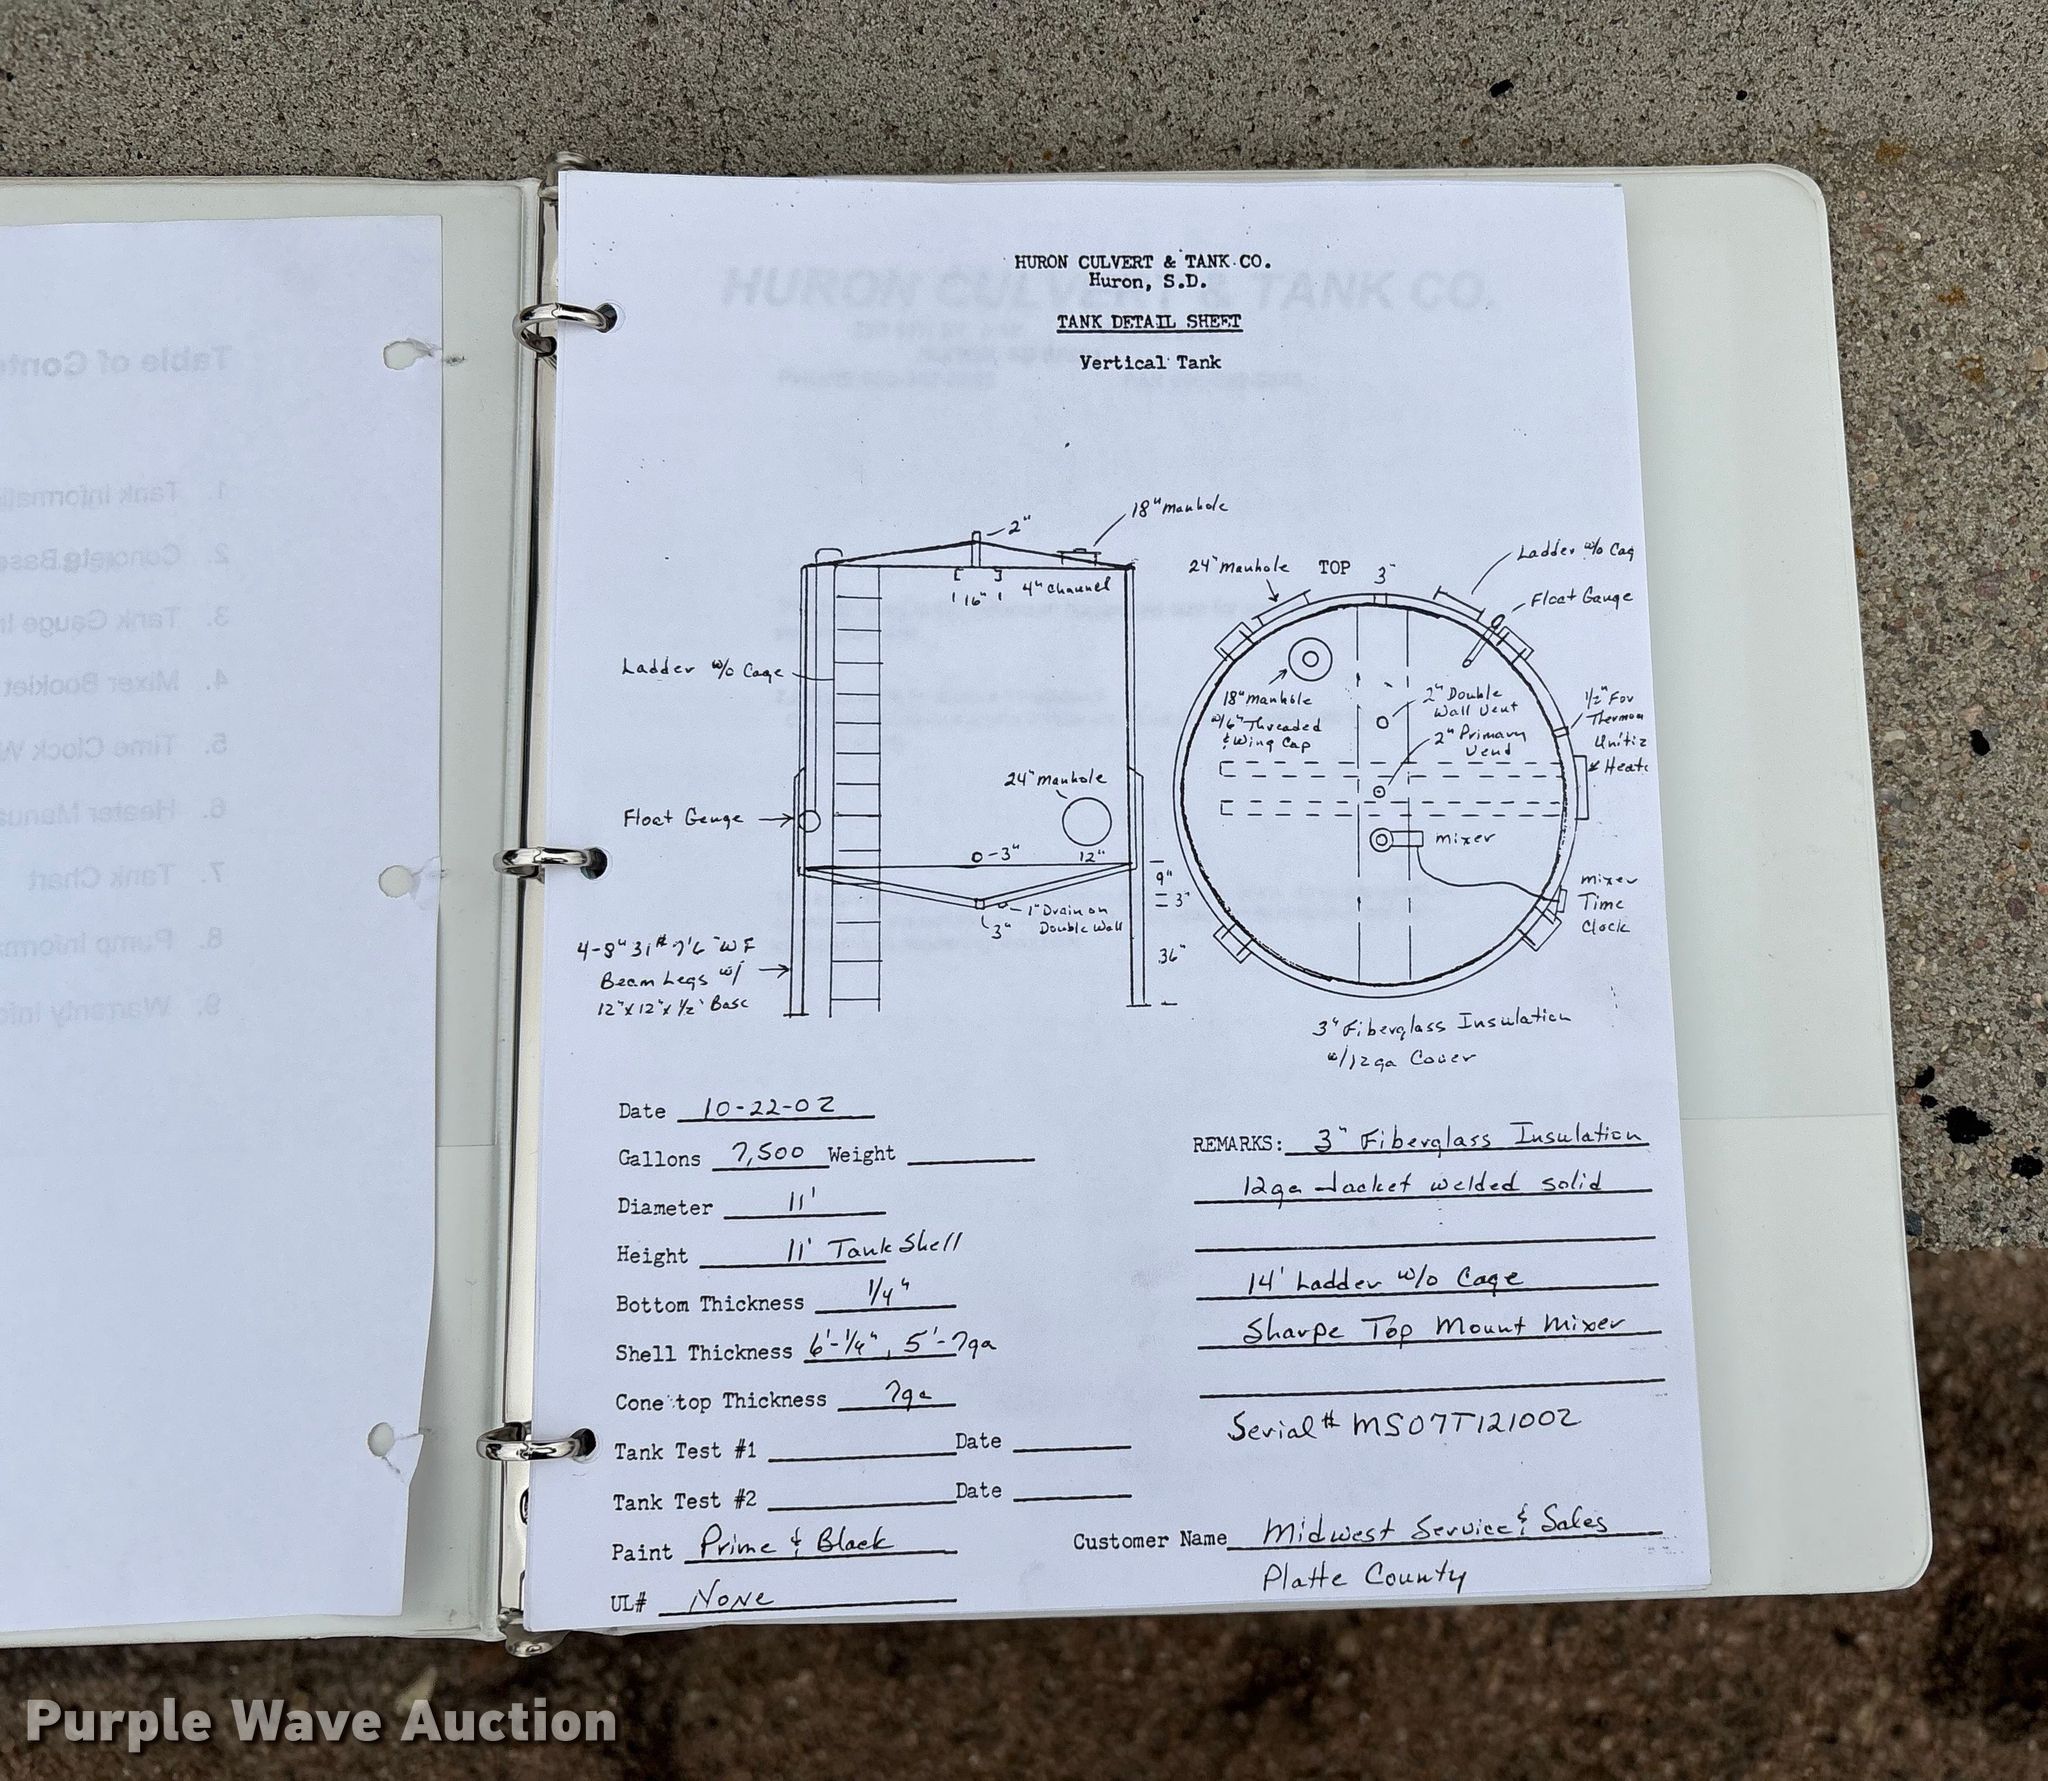 Table of Conte
1. Tank Informati
2. Concrete Base
3. Tank Gauge In
4. Mixer Booklet
5. Time Clock W
6. Heater Manua
7. Tank Chart
8. Pump Informa
9. Warranty Info
HURON CULVERT & TANK CO.
HURON CULVERT & TANK CO.
Huron, S.D.
TANK DETAIL SHEET
Vertical Tank
2"
18" Manhole
4" Channel
16"
Ladder w/o Cage
24" Manhole
Float Gauge
0-3"
12"
9"
3"
1" Drain on
Double Wall
3"
36"
4-8" 31# 7'6" WF
Beam Legs w/
12"x12"x1/2" Base
24" Manhole
TOP
3"
Ladder w/o Cag
Float Gauge
18" Manhole
w/6" Threaded
& Wing Cap
2" Double
Wall Vent
2" Primary
Vend
1/2" For
Thermom
Unitiz
Heate
mixer
mixer
Time
Clock
3" Fiberglass Insulation
w/12ga Cover
Date 10-22-02
Gallons 7,500 Weight
Diameter 11'
Height 11' Tank Shell
Bottom Thickness 1/4"
Shell Thickness 6'-1/4", 5'-7ga
Cone top Thickness 7ga
Tank Test #1 Date
Tank Test #2 Date
Paint Prime & Black
UL# None
REMARKS: 3" Fiberglass Insulation
12ga Jacket welded solid
14' Ladder w/o Cage
Sharpe Top Mount Mixer
Serial# MS07T121002
Customer Name Midwest Service & Sales
Platte County
Purple Wave Auction